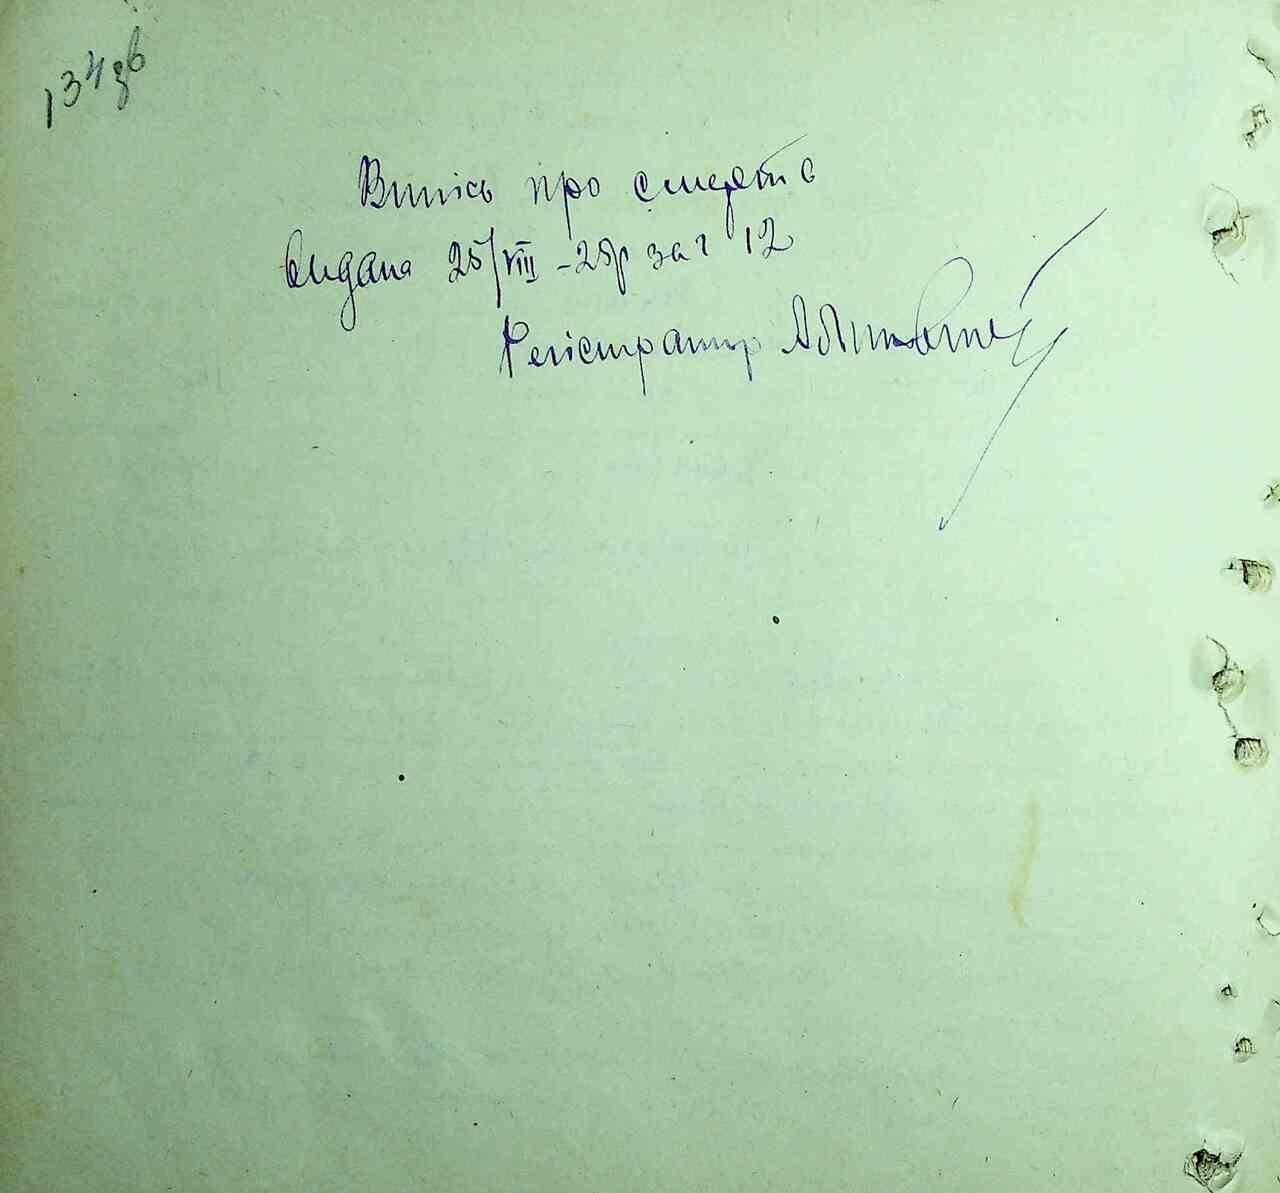 134зв
Випись про смерть
видана 25/VIII – 28р за г 12
Регістратор